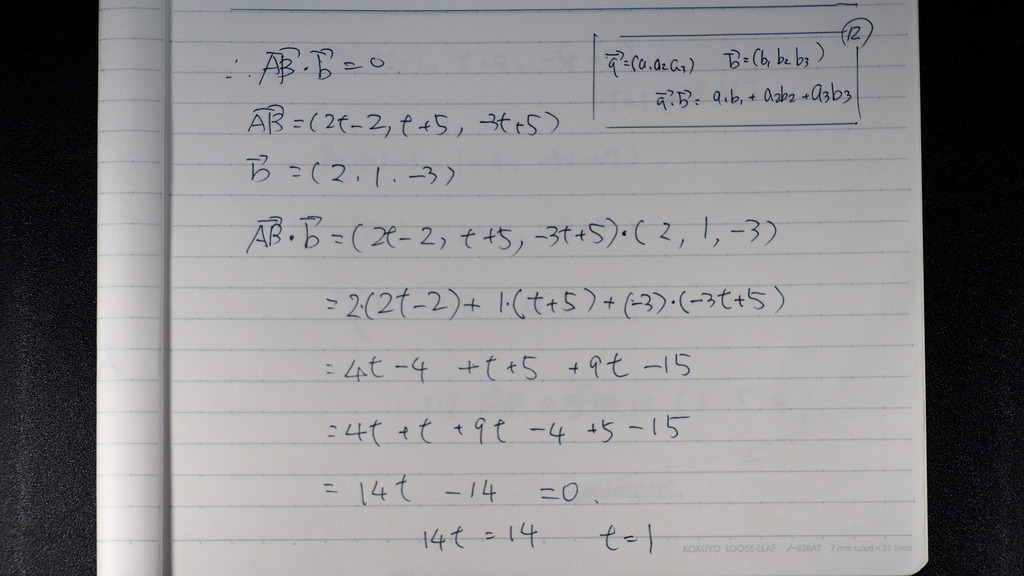 ∴ AB⃗·b⃗=0
⑫
a⃗=(a₁a₂a₃) b⃗=(b₁b₂b₃)
a⃗·b⃗= a₁b₁+a₂b₂+a₃b₃
AB⃗=(2t-2, t+5, -3t+5)
b⃗ =(2. 1. -3)
AB⃗·b⃗=(2t-2, t+5, -3t+5)·(2, 1, -3)
=2·(2t-2)+ 1·(t+5)+(-3)·(-3t+5)
=4t-4 +t+5 +9t -15
=4t +t +9t -4 +5 -15
= 14t -14 =0.
14t =14. t=1
KOKUYO LOOSE-LEAF ノ-836AT 7 mm ruled×31 lines